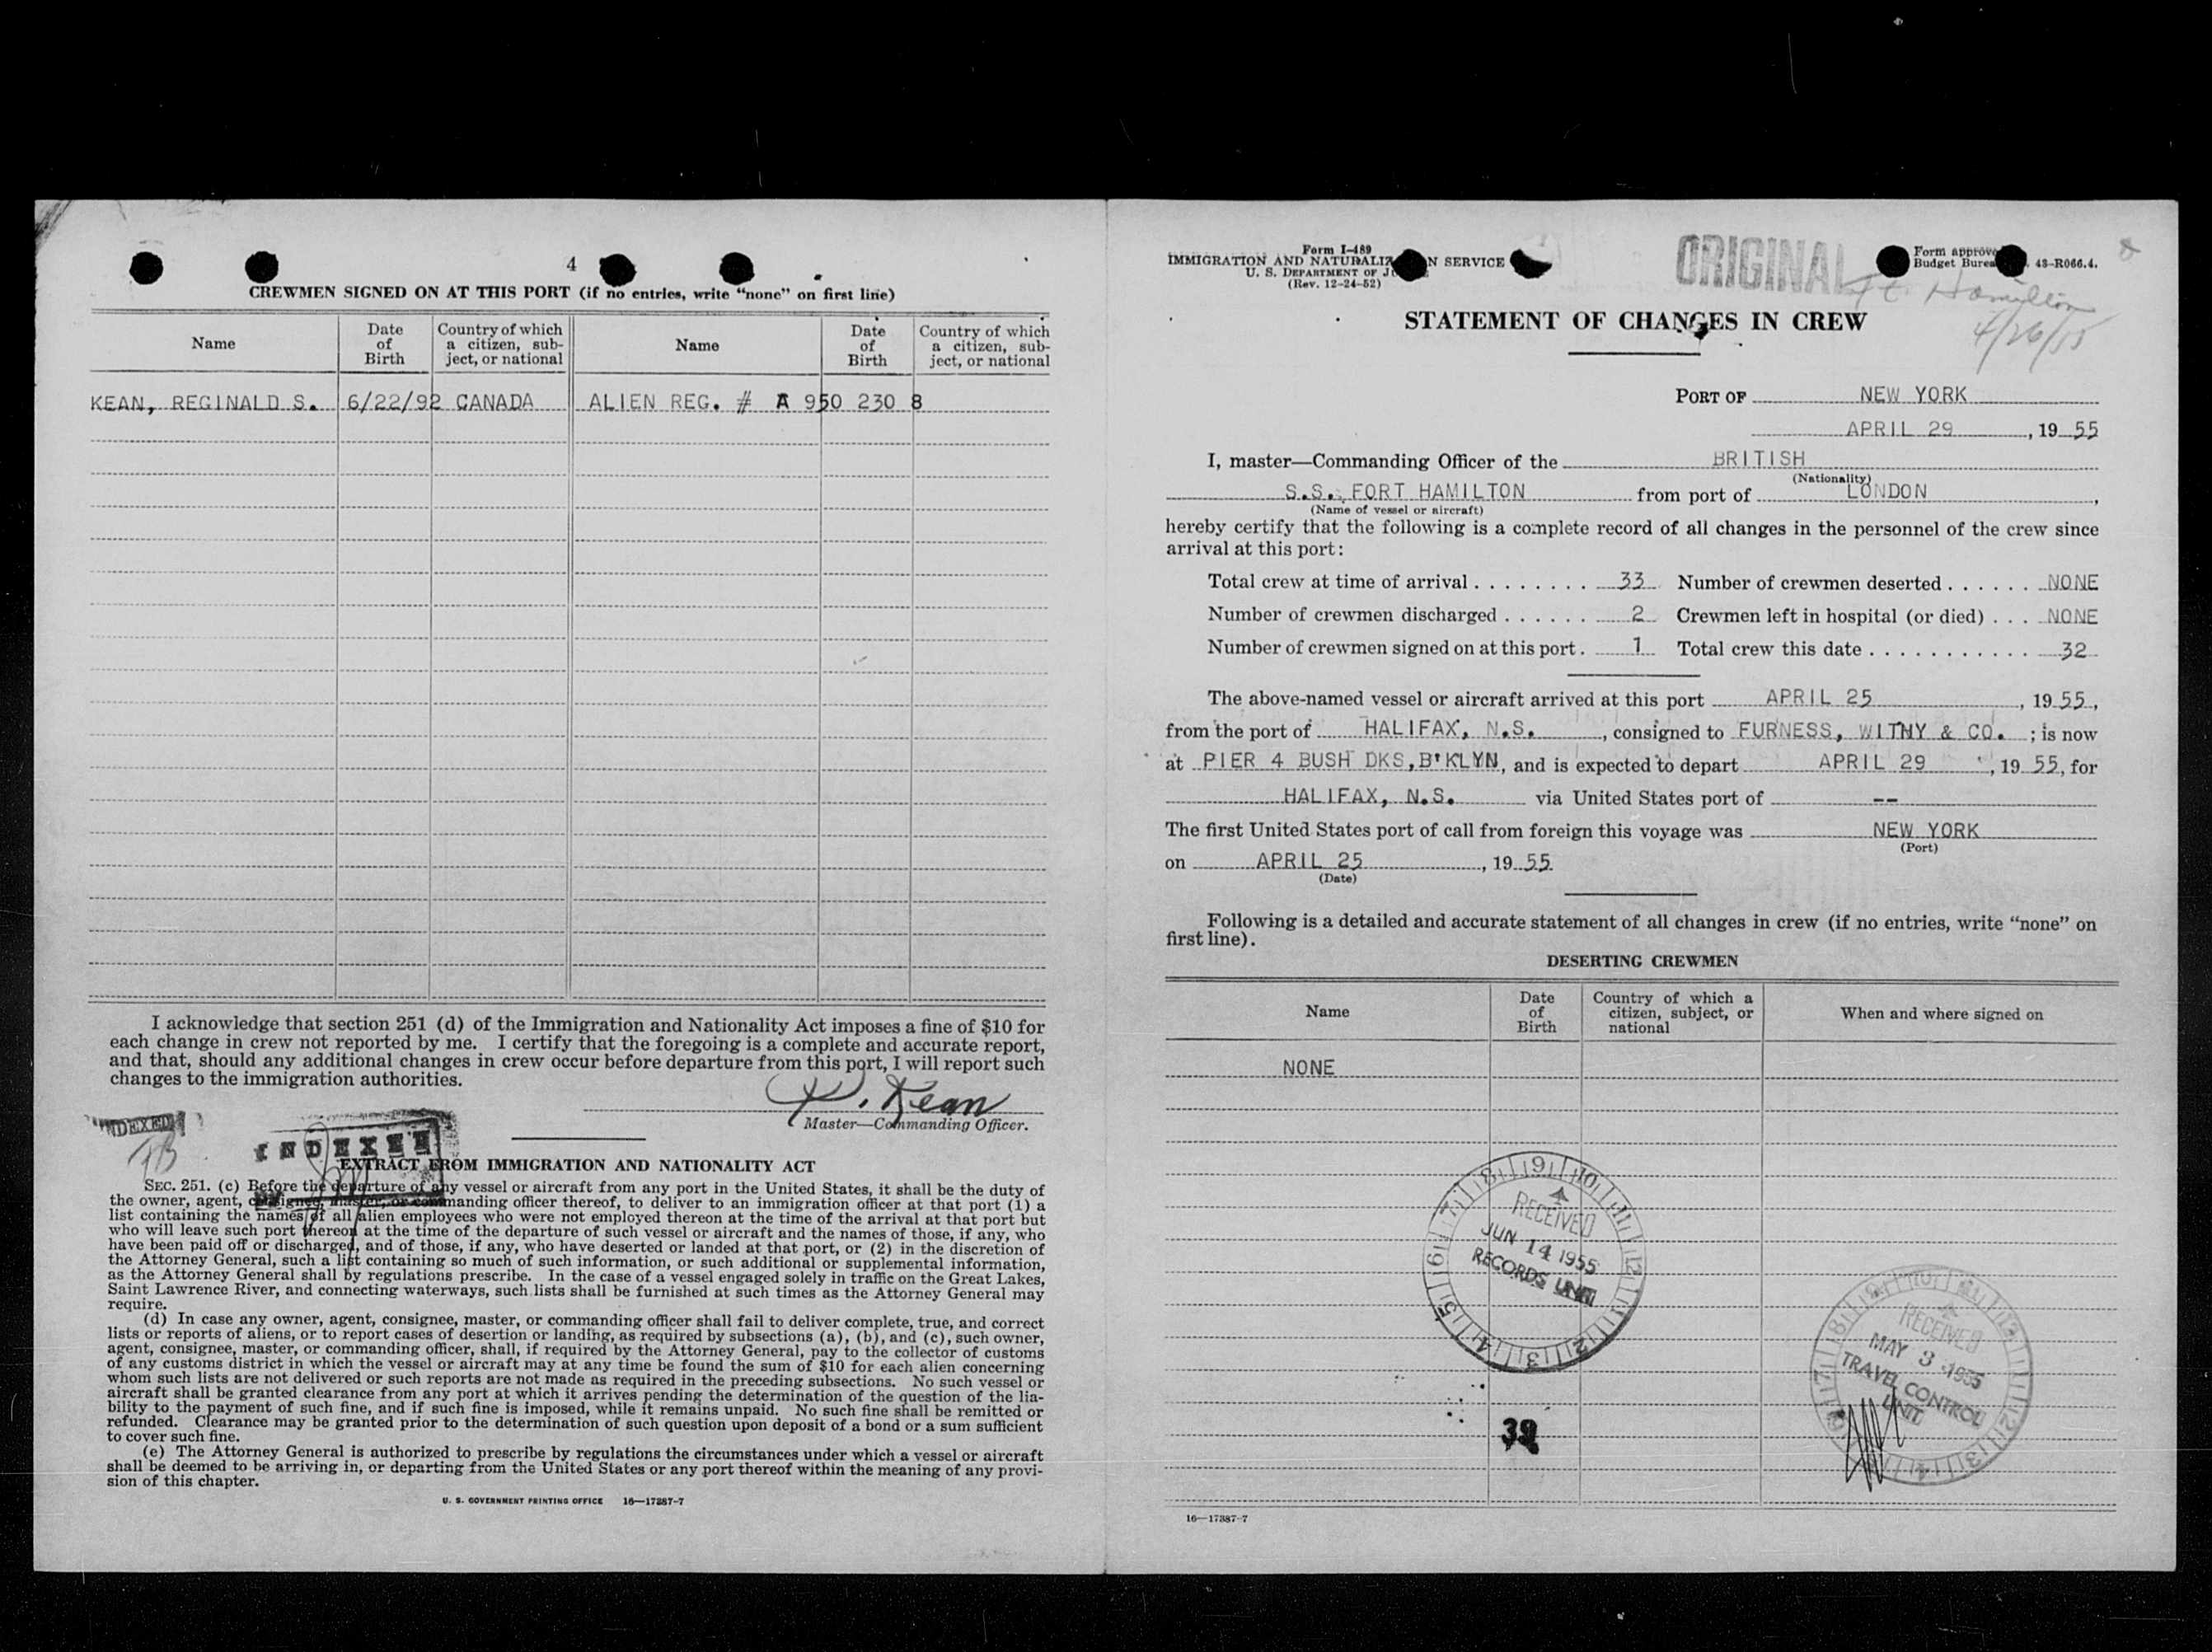 4
CREWMEN SIGNED ON AT THIS PORT (if no entries, write "none" on first line)
Name
Date of Birth
Country of which a citizen, subject, or national
Name
Date of Birth
Country of which a citizen, subject, or national
KEAN, REGINALD S. 6/22/92 CANADA ALIEN REG. # A 950 230 8
I acknowledge that section 251 (d) of the Immigration and Nationality Act imposes a fine of $10 for
each change in crew not reported by me. I certify that the foregoing is a complete and accurate report,
and that, should any additional changes in crew occur before departure from this port, I will report such
changes to the immigration authorities.
Kean
Master—Commanding Officer.
INDEXED
INDEXED
EXTRACT FROM IMMIGRATION AND NATIONALITY ACT
SEC. 251. (c) Before the departure of any vessel or aircraft from any port in the United States, it shall be the duty of
the owner, agent, consignee, master, or commanding officer thereof, to deliver to an immigration officer at that port (1) a
list containing the names of all alien employees who were not employed thereon at the time of the arrival at that port but
who will leave such port thereon at the time of the departure of such vessel or aircraft and the names of those, if any, who
have been paid off or discharged, and of those, if any, who have deserted or landed at that port, or (2) in the discretion of
the Attorney General, such a list containing so much of such information, or such additional or supplemental information,
as the Attorney General shall by regulations prescribe. In the case of a vessel engaged solely in traffic on the Great Lakes,
Saint Lawrence River, and connecting waterways, such lists shall be furnished at such times as the Attorney General may
require.
(d) In case any owner, agent, consignee, master, or commanding officer shall fail to deliver complete, true, and correct
lists or reports of aliens, or to report cases of desertion or landing, as required by subsections (a), (b), and (c), such owner,
agent, consignee, master, or commanding officer, shall, if required by the Attorney General, pay to the collector of customs
of any customs district in which the vessel or aircraft may at any time be found the sum of $10 for each alien concerning
whom such lists are not delivered or such reports are not made as required in the preceding subsections. No such vessel or
aircraft shall be granted clearance from any port at which it arrives pending the determination of the question of the lia-
bility to the payment of such fine, and if such fine is imposed, while it remains unpaid. No such fine shall be remitted or
refunded. Clearance may be granted prior to the determination of such question upon deposit of a bond or a sum sufficient
to cover such fine.
(e) The Attorney General is authorized to prescribe by regulations the circumstances under which a vessel or aircraft
shall be deemed to be arriving in, or departing from the United States or any port thereof within the meaning of any provi-
sion of this chapter.
U. S. GOVERNMENT PRINTING OFFICE 16—17387-7
Form I-489
IMMIGRATION AND NATURALIZ N SERVICE
U. S. DEPARTMENT OF J
(Rev. 12-24-52)
ORIGINAL
Form approve
Budget Burea 43-R066.4.
Ft. Hamilton
4/26/55
STATEMENT OF CHANGES IN CREW
PORT OF NEW YORK
APRIL 29, 19 55
I, master—Commanding Officer of the BRITISH
(Nationality)
S.S. FORT HAMILTON from port of LONDON,
(Name of vessel or aircraft)
hereby certify that the following is a complete record of all changes in the personnel of the crew since
arrival at this port:
Total crew at time of arrival . . . . . . . . 33 Number of crewmen deserted . . . . . . NONE
Number of crewmen discharged . . . . . . 2 Crewmen left in hospital (or died) . . . NONE
Number of crewmen signed on at this port . 1 Total crew this date . . . . . . . . . . . 32
The above-named vessel or aircraft arrived at this port APRIL 25, 19 55,
from the port of HALIFAX, N.S., consigned to FURNESS, WITHY & CO. ; is now
at PIER 4 BUSH DKS,B'KLYN, and is expected to depart APRIL 29, 19 55, for
HALIFAX, N.S. via United States port of --
The first United States port of call from foreign this voyage was NEW YORK
(Port)
on APRIL 25, 19 55
(Date)
Following is a detailed and accurate statement of all changes in crew (if no entries, write "none" on
first line).
DESERTING CREWMEN
Name
Date of Birth
Country of which a citizen, subject, or national
When and where signed on
NONE
RECEIVED
JUN 14 1955
RECORDS UNIT
RECEIVED
MAY 3 1955
TRAVEL CONTROL
UNIT
16—17387-7